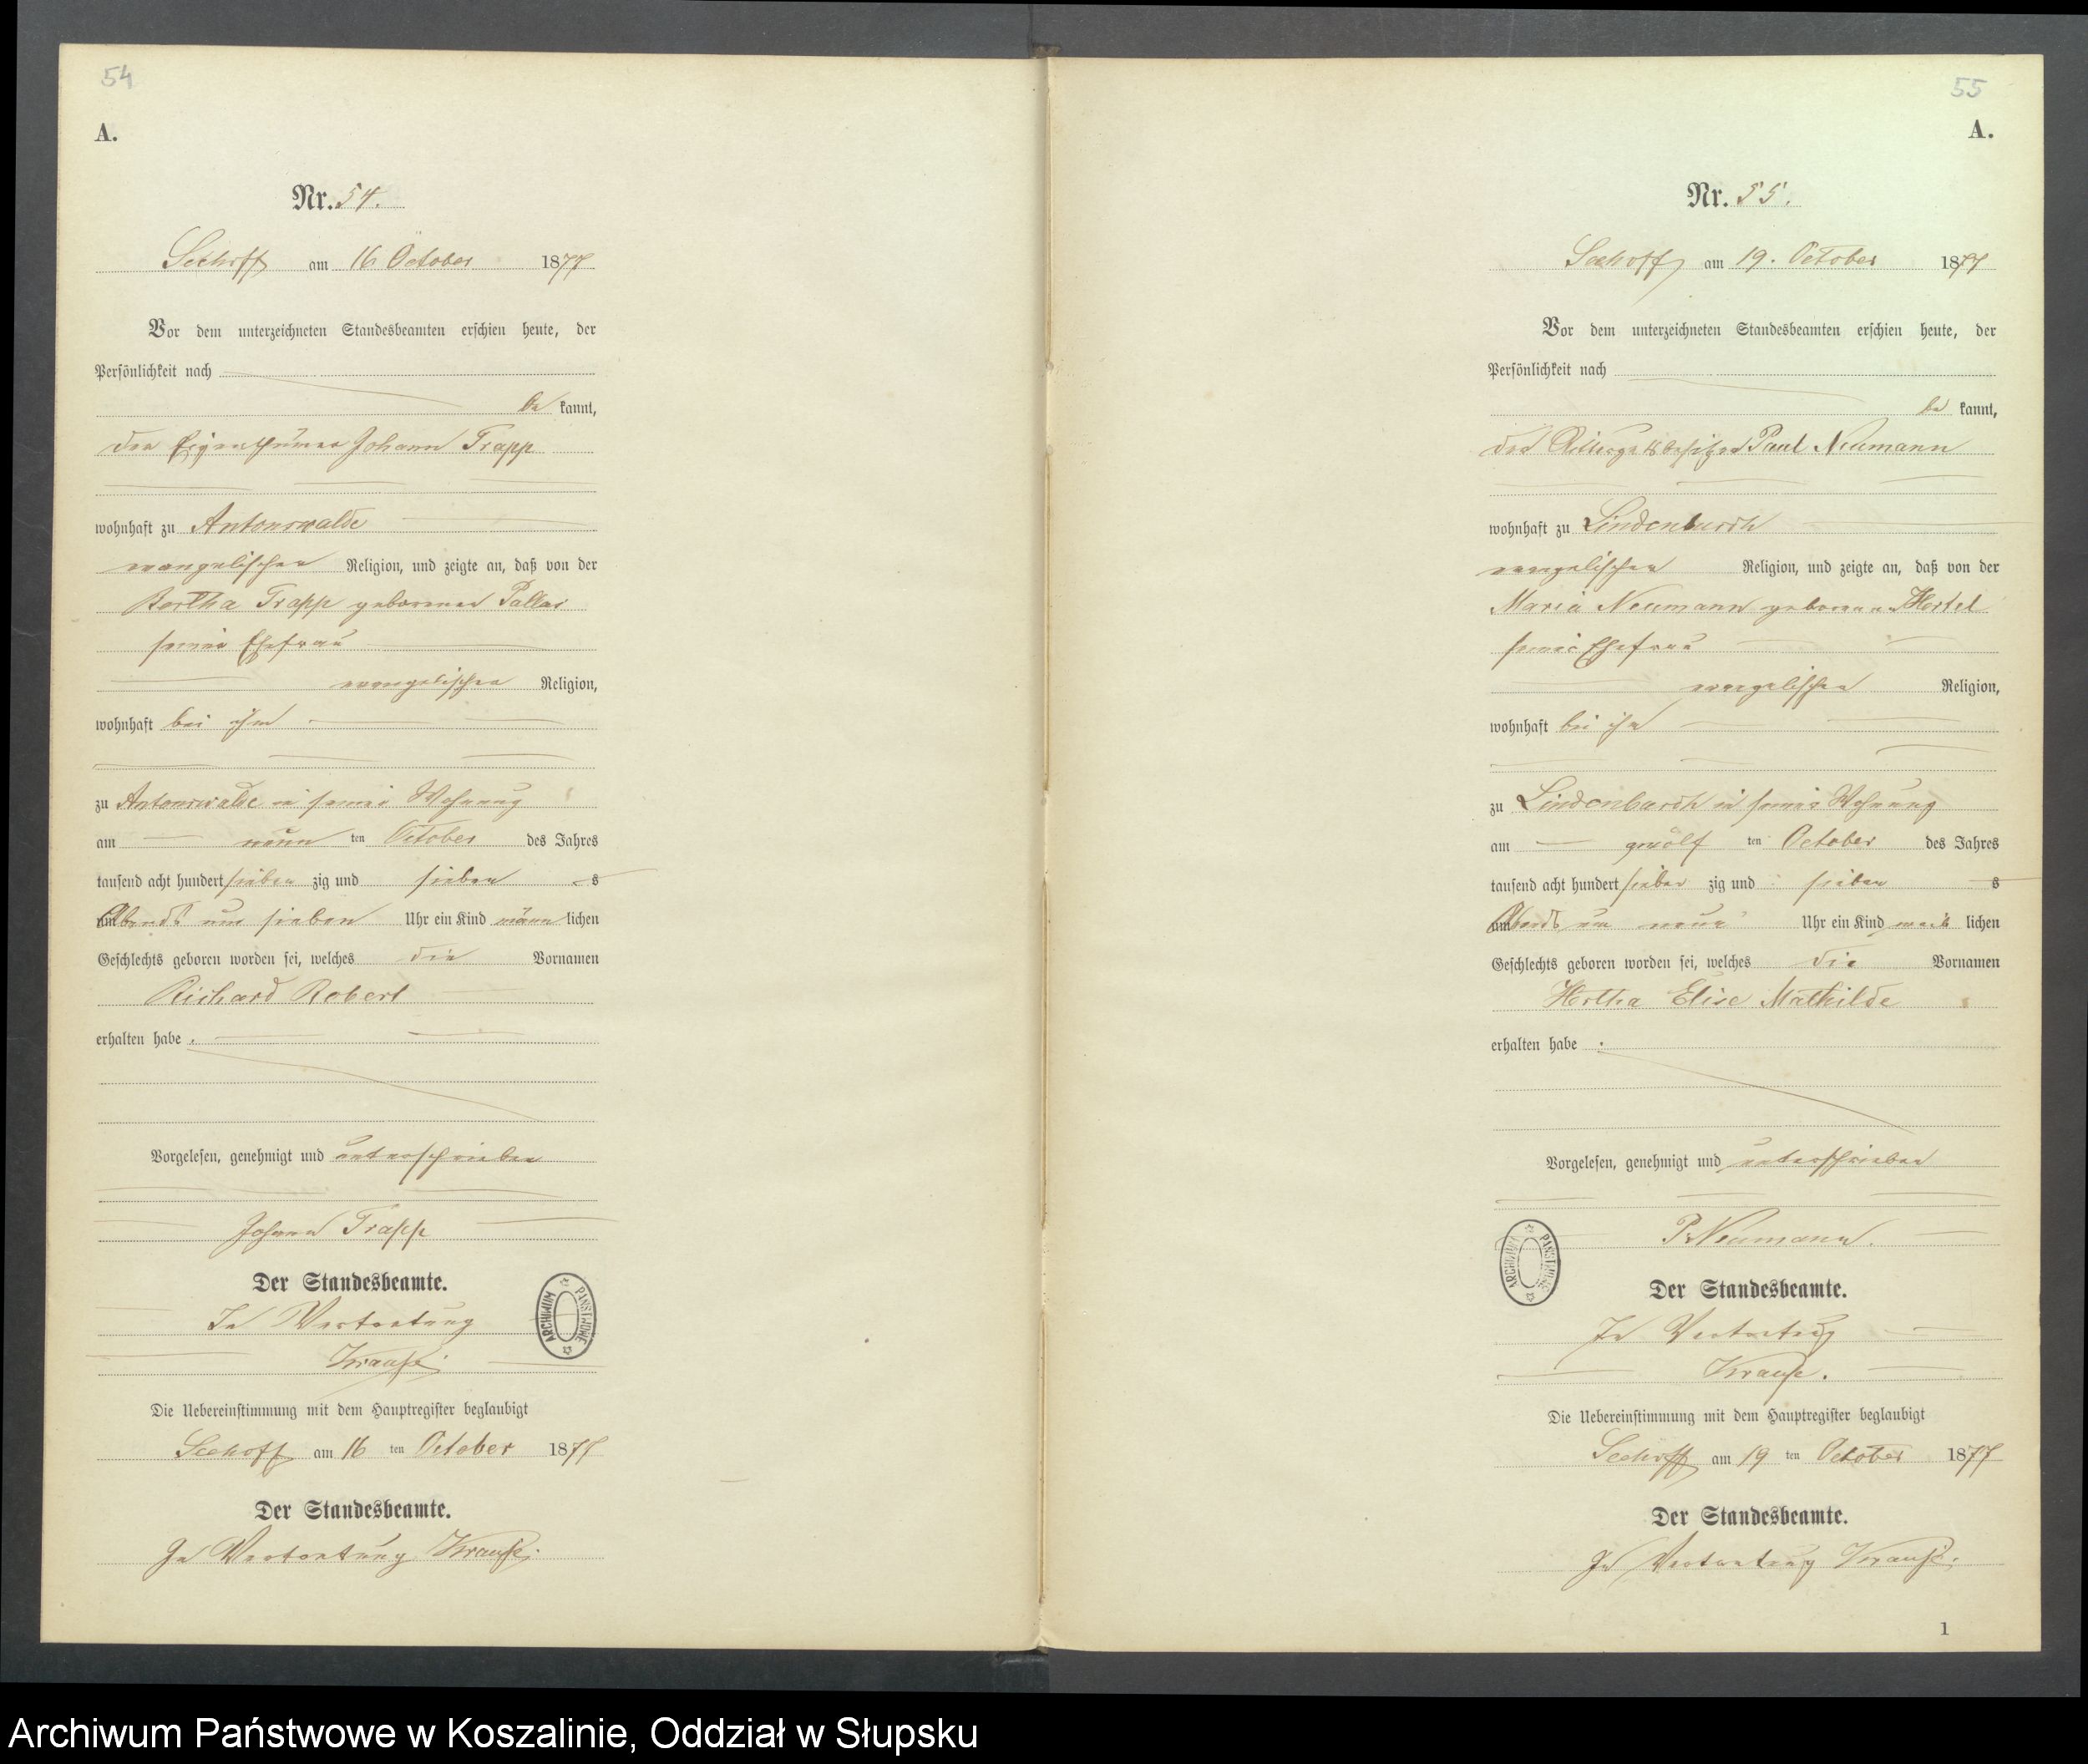 54
A.
Nr. 54.
Seehoff am 16 October 1877
Vor dem unterzeichneten Standesbeamten erschien heute, der
Persönlichkeit nach
be kannt,
der Eigenthümer Johann Trapp
wohnhaft zu Antonswalde
evangelischer Religion, und zeigte an, daß von der
Bertha Trapp geborenen Pallas
seiner Ehefrau
evangelischer Religion,
wohnhaft bei ihm
zu Antonswalde in seiner Wohnung
am neun ten October des Jahres
tausend acht hundert sieben zig und sieben s
Abends um sieben Uhr ein Kind männ lichen
Geschlechts geboren worden sei, welches die Vornamen
Richard Robert
erhalten habe .
Vorgelesen, genehmigt und unterschrieben
Johann Trapp
Der Standesbeamte.
In Vertretung
Krause.
ARCHIWUM PAŃSTWOWE
Die Uebereinstimmung mit dem Hauptregister beglaubigt
Seehoff am 16 ten October 1877
Der Standesbeamte.
In Vertretung Krause.
55
A.
Nr. 55.
Seehoff am 19. October 1877
Vor dem unterzeichneten Standesbeamten erschien heute, der
Persönlichkeit nach
be kannt,
der Rittergutsbesitzer Paul Neumann
wohnhaft zu Lindenbusch
evangelischer Religion, und zeigte an, daß von der
Maria Neumann geborenen Hertel
seiner Ehefrau
evangelischer Religion,
wohnhaft bei ihm
zu Lindenbusch in seiner Wohnung
am zwölf ten October des Jahres
tausend acht hundert sieben zig und sieben s
Abends um neun Uhr ein Kind weib lichen
Geschlechts geboren worden sei, welches die Vornamen
Hertha Elise Mathilde
erhalten habe .
Vorgelesen, genehmigt und unterschrieben
P. Neumann.
ARCHIWUM PAŃSTWOWE
Der Standesbeamte.
In Vertretung
Krause.
Die Uebereinstimmung mit dem Hauptregister beglaubigt
Seehoff am 19 ten October 1877
Der Standesbeamte.
In Vertretung Krause.
1
Archiwum Państwowe w Koszalinie, Oddział w Słupsku